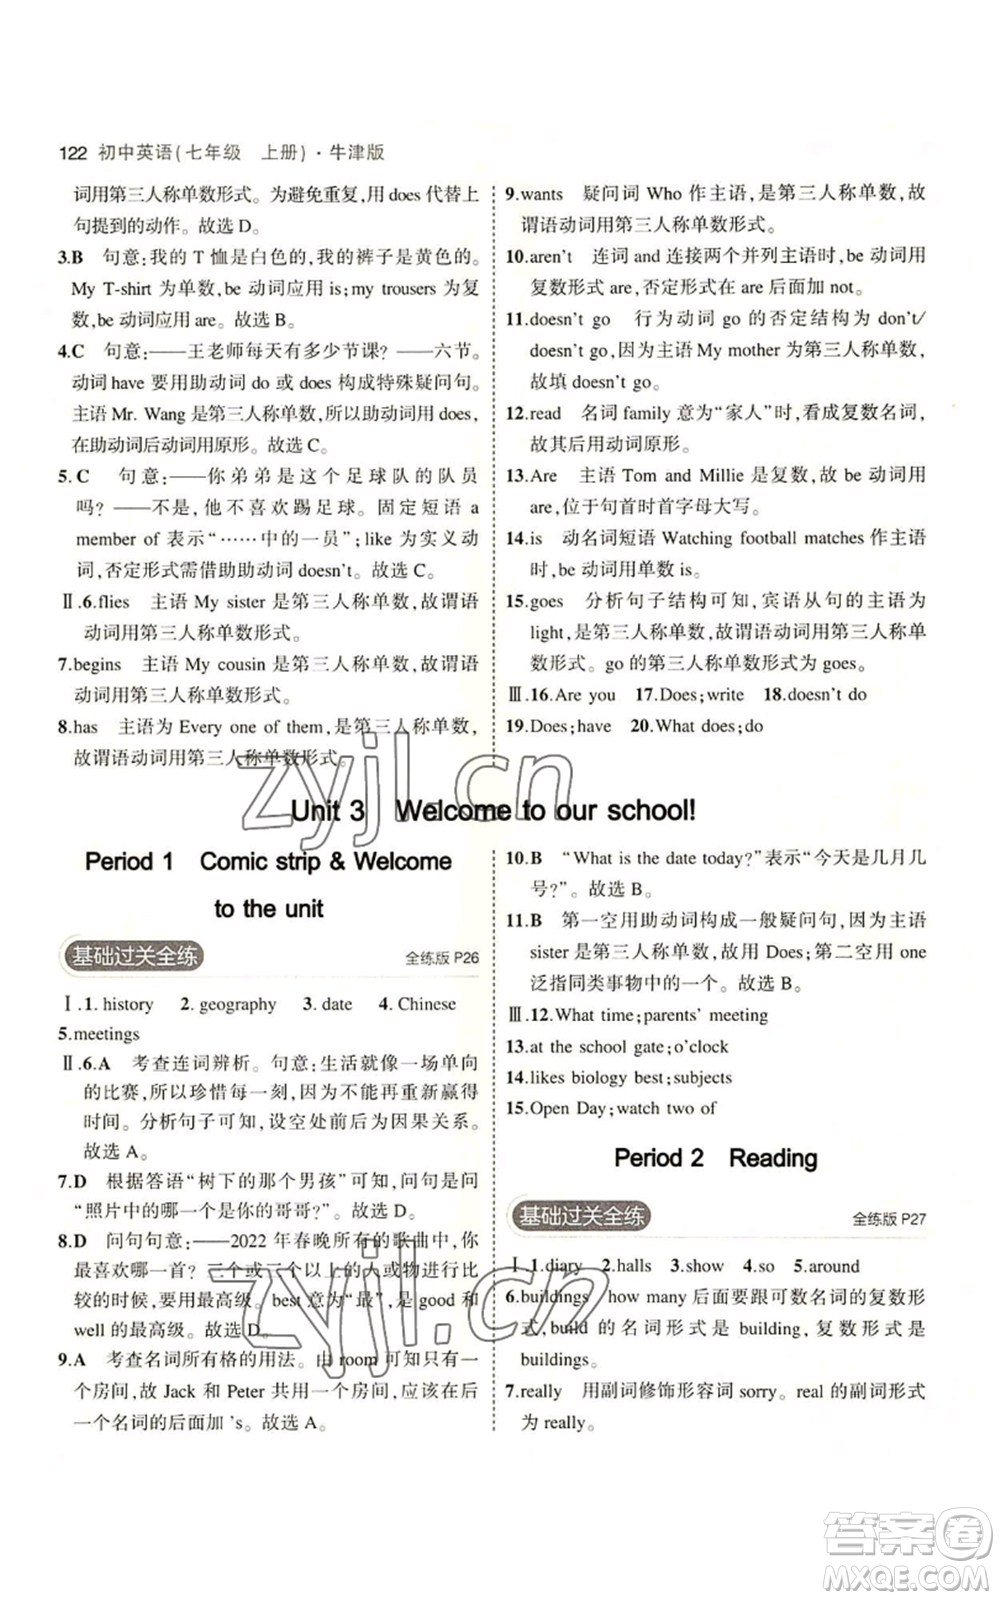 122 初中英语(七年级 上册)·牛津版
词用第三人称单数形式。为避免重复,用 does 代替上
句提到的动作。故选 D。
3.B 句意:我的 T 恤是白色的,我的裤子是黄色的。
My T-shirt 为单数,be 动词应用 is;my trousers 为复
数,be 动词应用 are。故选 B。
4.C 句意:——王老师每天有多少节课? ——六节。
动词 have 要用助动词 do 或 does 构成特殊疑问句。
主语 Mr. Wang 是第三人称单数,所以助动词用 does,
在助动词后动词用原形。故选 C。
5.C 句意:——你弟弟是这个足球队的队员
吗? ——不是,他不喜欢踢足球。固定短语 a
member of 表示“……中的一员”;like 为实义动
词,否定形式需借助助动词 doesn't。故选 C。
Ⅱ.6.flies 主语 My sister 是第三人称单数,故谓语
动词用第三人称单数形式。
7.begins 主语 My cousin 是第三人称单数,故谓语
动词用第三人称单数形式。
8.has 主语为 Every one of them,是第三人称单数,
故谓语动词用第三人称单数形式。
9.wants 疑问词 Who 作主语,是第三人称单数,故
谓语动词用第三人称单数形式。
10.aren't 连词 and 连接两个并列主语时,be 动词用
复数形式 are,否定形式在 are 后面加 not。
11.doesn't go 行为动词 go 的否定结构为 don't/
doesn't go,因为主语 My mother 为第三人称单数,
故填 doesn't go。
12.read 名词 family 意为“家人”时,看成复数名词,
故其后用动词原形。
13.Are 主语 Tom and Millie 是复数,故 be 动词用
are,位于句首时首字母大写。
14.is 动名词短语 Watching football matches 作主语
时,be 动词用单数 is。
15.goes 分析句子结构可知,宾语从句的主语为
light,是第三人称单数,故谓语动词用第三人称单
数形式。go 的第三人称单数形式为 goes。
Ⅲ.16.Are you 17.Does;write 18.doesn't do
19.Does;have 20.What does;do
zyjl.cn
Unit 3 Welcome to our school!
Period 1 Comic strip & Welcome
to the unit
基础过关全练 全练版 P26
Ⅰ.1. history 2. geography 3. date 4. Chinese
5.meetings
Ⅱ.6.A 考查连词辨析。句意:生活就像一场单向
的比赛,所以珍惜每一刻,因为你不能再重新赢得
时间。分析句子可知,设空处前后为因果关系。
故选 A。
7.D 根据答语“树下的那个男孩”可知,问句是问
“照片中的哪一个是你的哥哥?”。故选 D。
8.D 问句句意:——2022 年春晚所有的歌曲中,你
最喜欢哪一首? 三个或三个以上的人或事物进行比
较的时候,要用最高级。best 意为“最”,是 good 和
well 的最高级。故选 D。
9.A 考查名词所有格的用法。由 room 可知只有一
个房间,故 Jack 和 Peter 共用一个房间,应该在后
一个名词的后面加 's。故选 A。
10.B “What is the date today?”表示“今天是几月几
号?”。故选 B。
11.B 第一空用助动词构成一般疑问句,因为主语
sister 是第三人称单数,故用 Does;第二空用 one
泛指同类事物中的一个。故选 B。
Ⅲ.12.What time;parents' meeting
13.at the school gate;o'clock
14.likes biology best;subjects
15.Open Day;watch two of
Period 2 Reading
基础过关全练 全练版 P27
Ⅰ.1.diary 2.halls 3.show 4.so 5.around
6.buildings how many 后面要跟可数名词的复数形
式,build 的名词形式是 building,复数形式是
buildings。
7.really 用副词修饰形容词 sorry。real 的副词形式
为 really。
zyjl.cn
答案卷
MXQE.COM